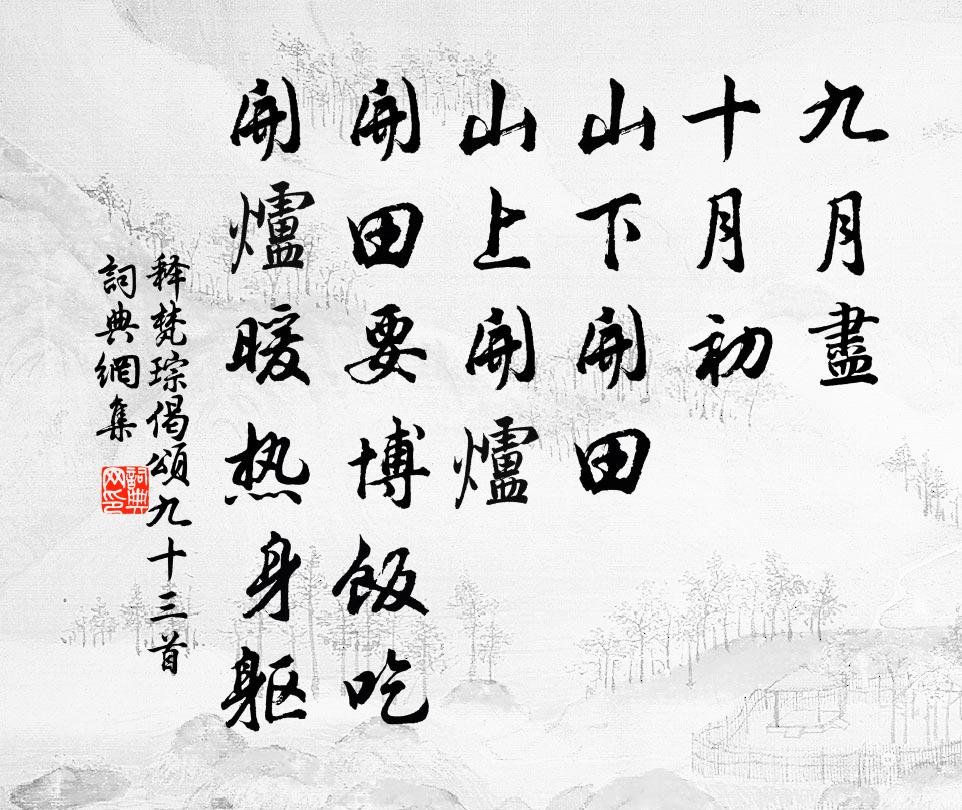 九月盡
十月初
山下開田
山上開爐
開田要博飯吃
開爐暖热身躯
释梵琮偈頌九十三首
詞典網集
詞典網印